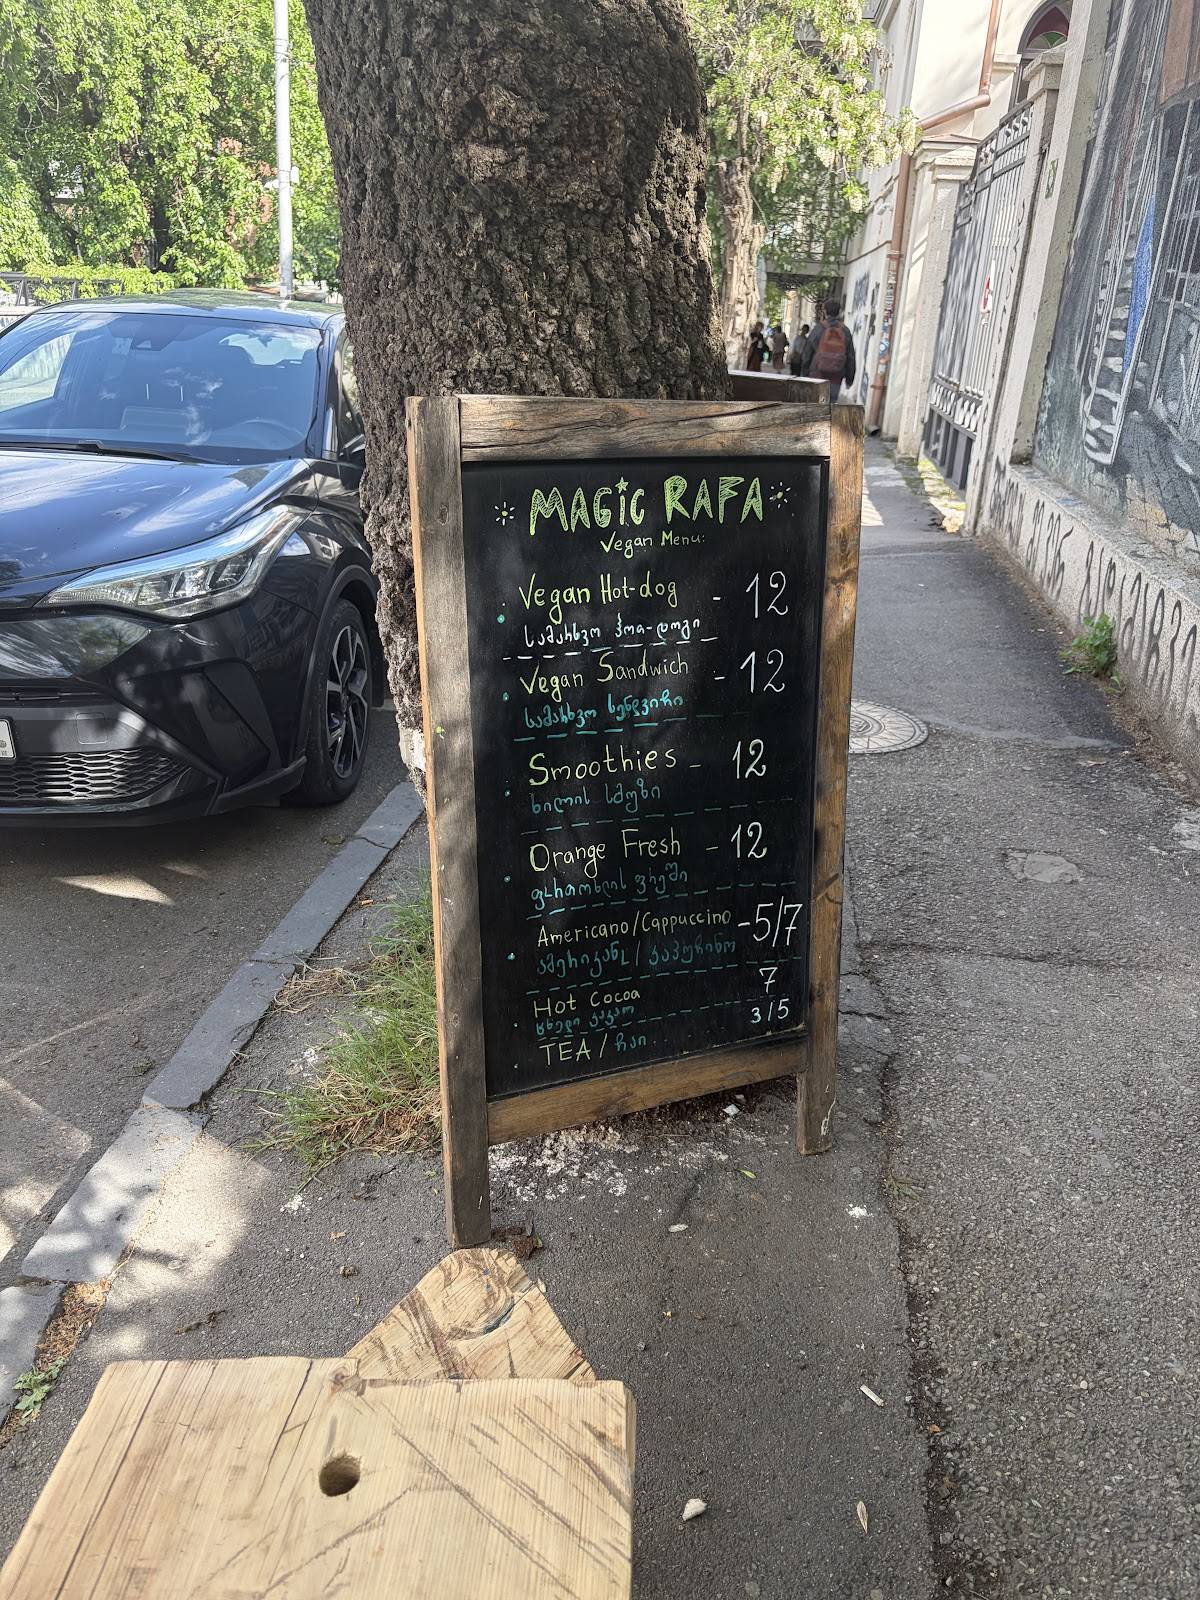 MAGIC RAFA
Vegan Menu:
Vegan Hot-dog - 12
სამარხვო ჰოთ-დოგი
Vegan Sandwich - 12
სამარხვო სენდვიჩი
Smoothies - 12
ხილის სმუზი
Orange Fresh - 12
ფორთოხლის ფრეში
Americano/Cappuccino - 5/7
ამერიკანო / კაპუჩინო
Hot Cocoa 7
ცხელი კაკაო
TEA / ჩაი 3/5